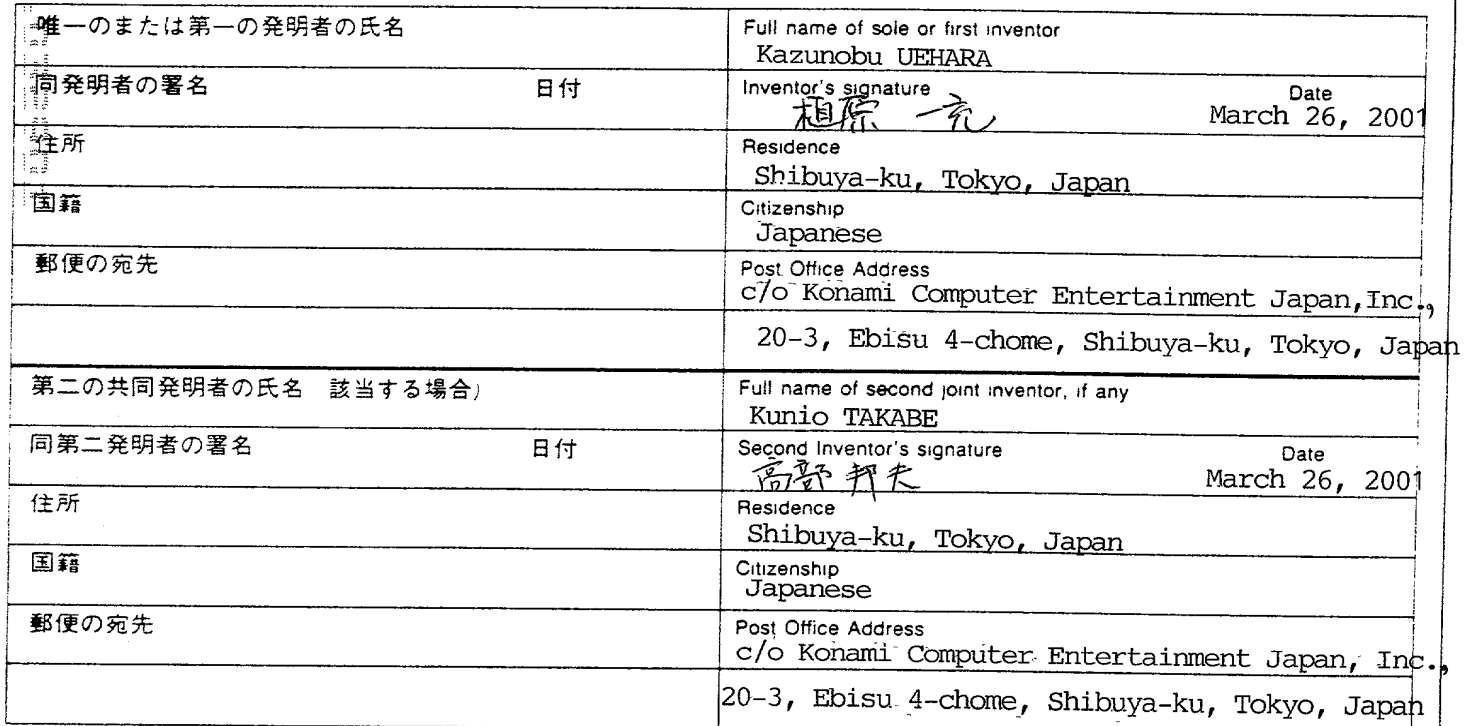 唯一のまたは第一の発明者の氏名
Full name of sole or first inventor
Kazunobu UEHARA
同発明者の署名 日付
Inventor's signature Date
植原 一充 March 26, 2001
住所
Residence
Shibuya-ku, Tokyo, Japan
国籍
Citizenship
Japanese
郵便の宛先
Post Office Address
c/o Konami Computer Entertainment Japan,Inc.,
20-3, Ebisu 4-chome, Shibuya-ku, Tokyo, Japan
第二の共同発明者の氏名 該当する場合)
Full name of second joint inventor, if any
Kunio TAKABE
同第二発明者の署名 日付
Second Inventor's signature Date
高部 邦夫 March 26, 2001
住所
Residence
Shibuya-ku, Tokyo, Japan
国籍
Citizenship
Japanese
郵便の宛先
Post Office Address
c/o Konami Computer Entertainment Japan, Inc.,
20-3, Ebisu 4-chome, Shibuya-ku, Tokyo, Japan